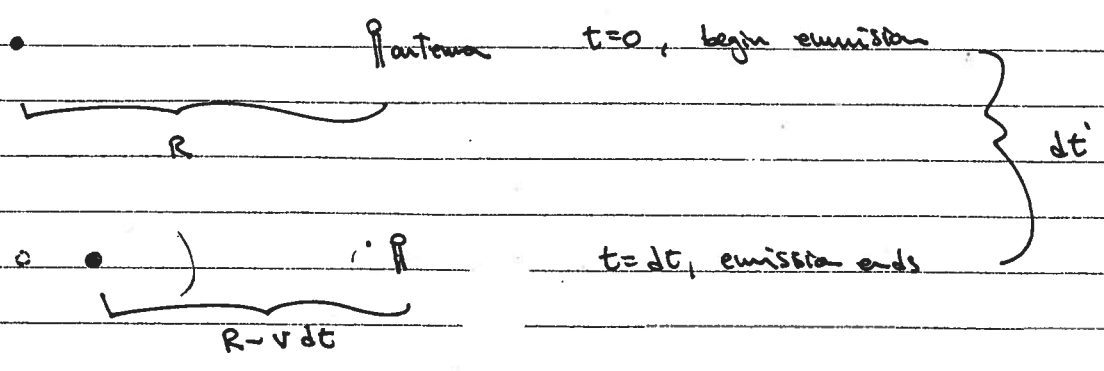 antenna t=0, begin emmision
R
dt'
t=dt, emission ends
R-v dt